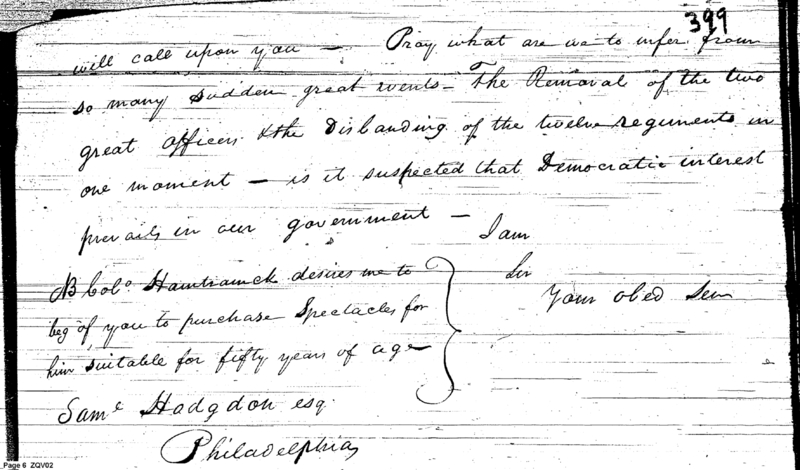 399
will call upon you — Pray what are we to infer from
so many sudden great events — The Removal of the two
great officers & the Disbanding of the twelve regiments in
one moment — is it suspected that Democratic interest
prevails in our government —
I am
Sir
Your obed Serv
NB Colo. Hamtramck desires me to
beg of you to purchase Spectacles for
him suitable for fifty years of age
Saml Hodgdon esq.
Philadelphia
Page 6 ZQV02